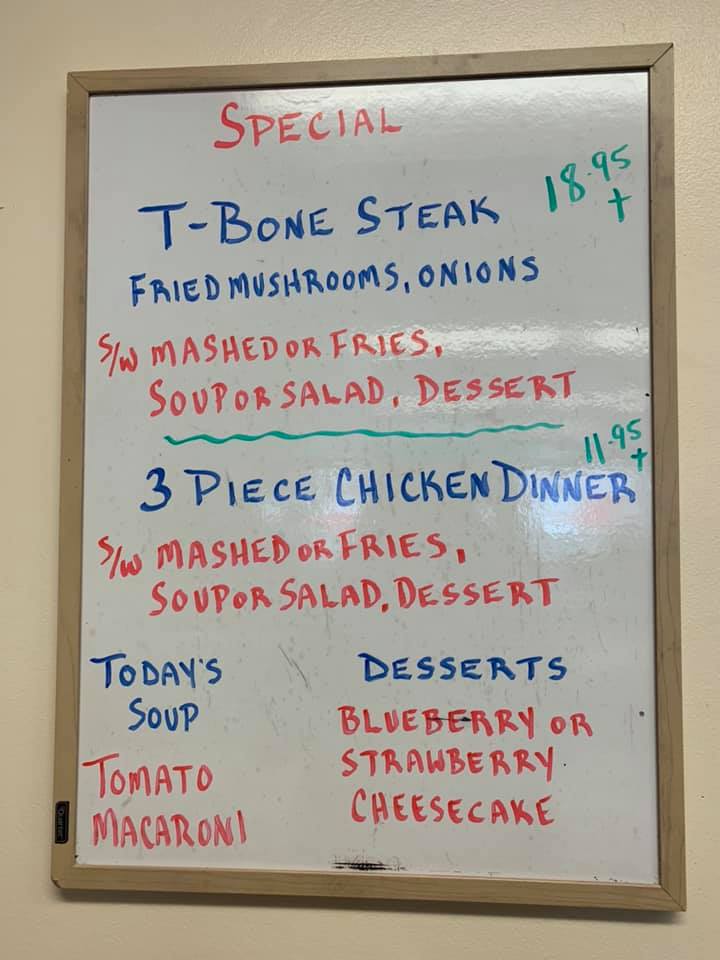 SPECIAL
T-BONE STEAK 18.95 +
FRIED MUSHROOMS, ONIONS
S/W MASHED OR FRIES,
SOUP OR SALAD, DESSERT
11.95 +
3 PIECE CHICKEN DINNER
S/W MASHED OR FRIES,
SOUP OR SALAD, DESSERT
TODAY'S
SOUP
TOMATO
MACARONI
DESSERTS
BLUEBERRY OR
STRAWBERRY
CHEESECAKE
Quartet